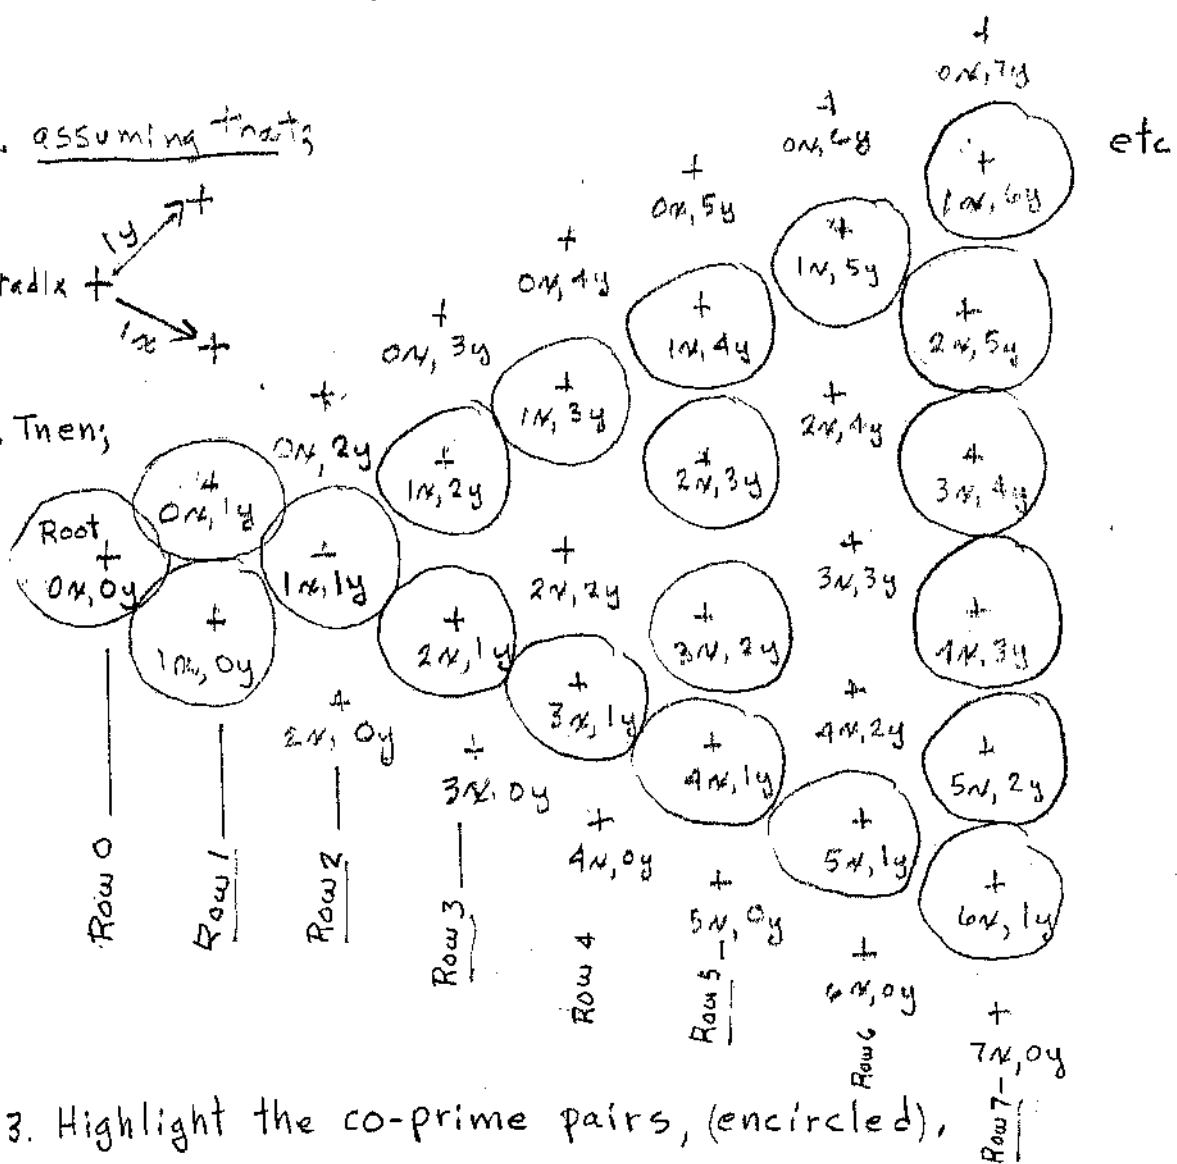 . assuming that;
1y
radix +
1x
. Then;
etc
Root
0x, 0y
0x, 1y
1x, 0y
0x, 2y
1x, 1y
2x, 0y
0x, 3y
1x, 2y
2x, 1y
3x, 0y
0x, 4y
1x, 3y
2x, 2y
3x, 1y
4x, 0y
0x, 5y
1x, 4y
2x, 3y
3x, 2y
4x, 1y
5x, 0y
0x, 6y
1x, 5y
2x, 4y
3x, 3y
4x, 2y
5x, 1y
6x, 0y
0x, 7y
1x, 6y
2x, 5y
3x, 4y
4x, 3y
5x, 2y
6x, 1y
7x, 0y
Row 0
Row 1
Row 2
Row 3
Row 4
Row 5
Row 6
Row 7
3. Highlight the co-prime pairs, (encircled),